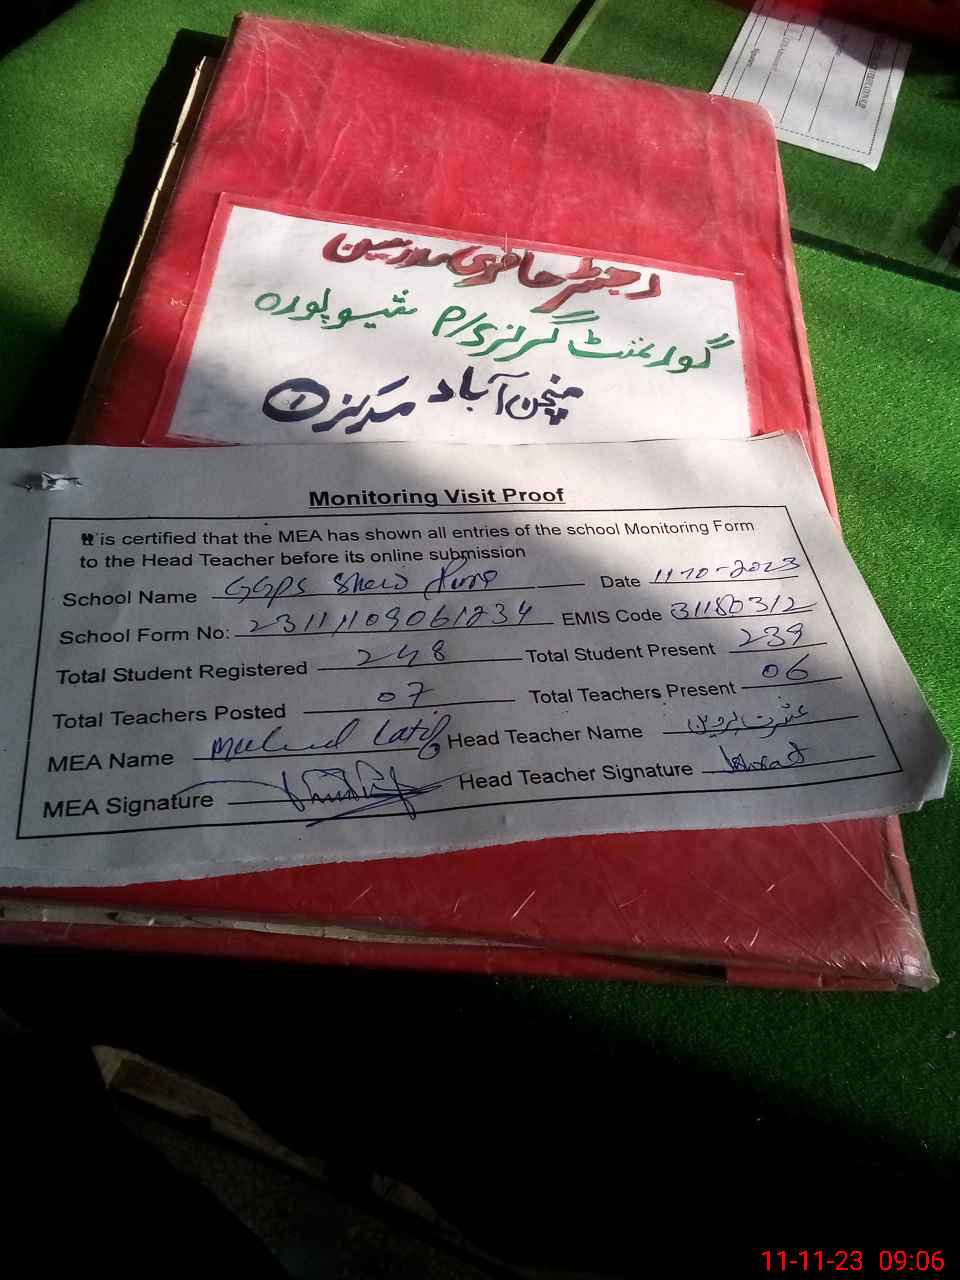 رجسٹر حاضری مدرسین
گورنمنٹ گرلز پ/س شیو پورہ
منچن آباد مرکز ①
Monitoring Visit Proof
It is certified that the MEA has shown all entries of the school Monitoring Form
to the Head Teacher before its online submission
School Name GGPS Date 11-10-2023
School Form No: 23111109061234 EMIS Code 31180312
Total Student Registered 248 Total Student Present 239
Total Teachers Posted 07 Total Teachers Present 06
MEA Name Latif Head Teacher Name عشرت پروین
MEA Signature Head Teacher Signature Ishrat
11-11-23 09:06